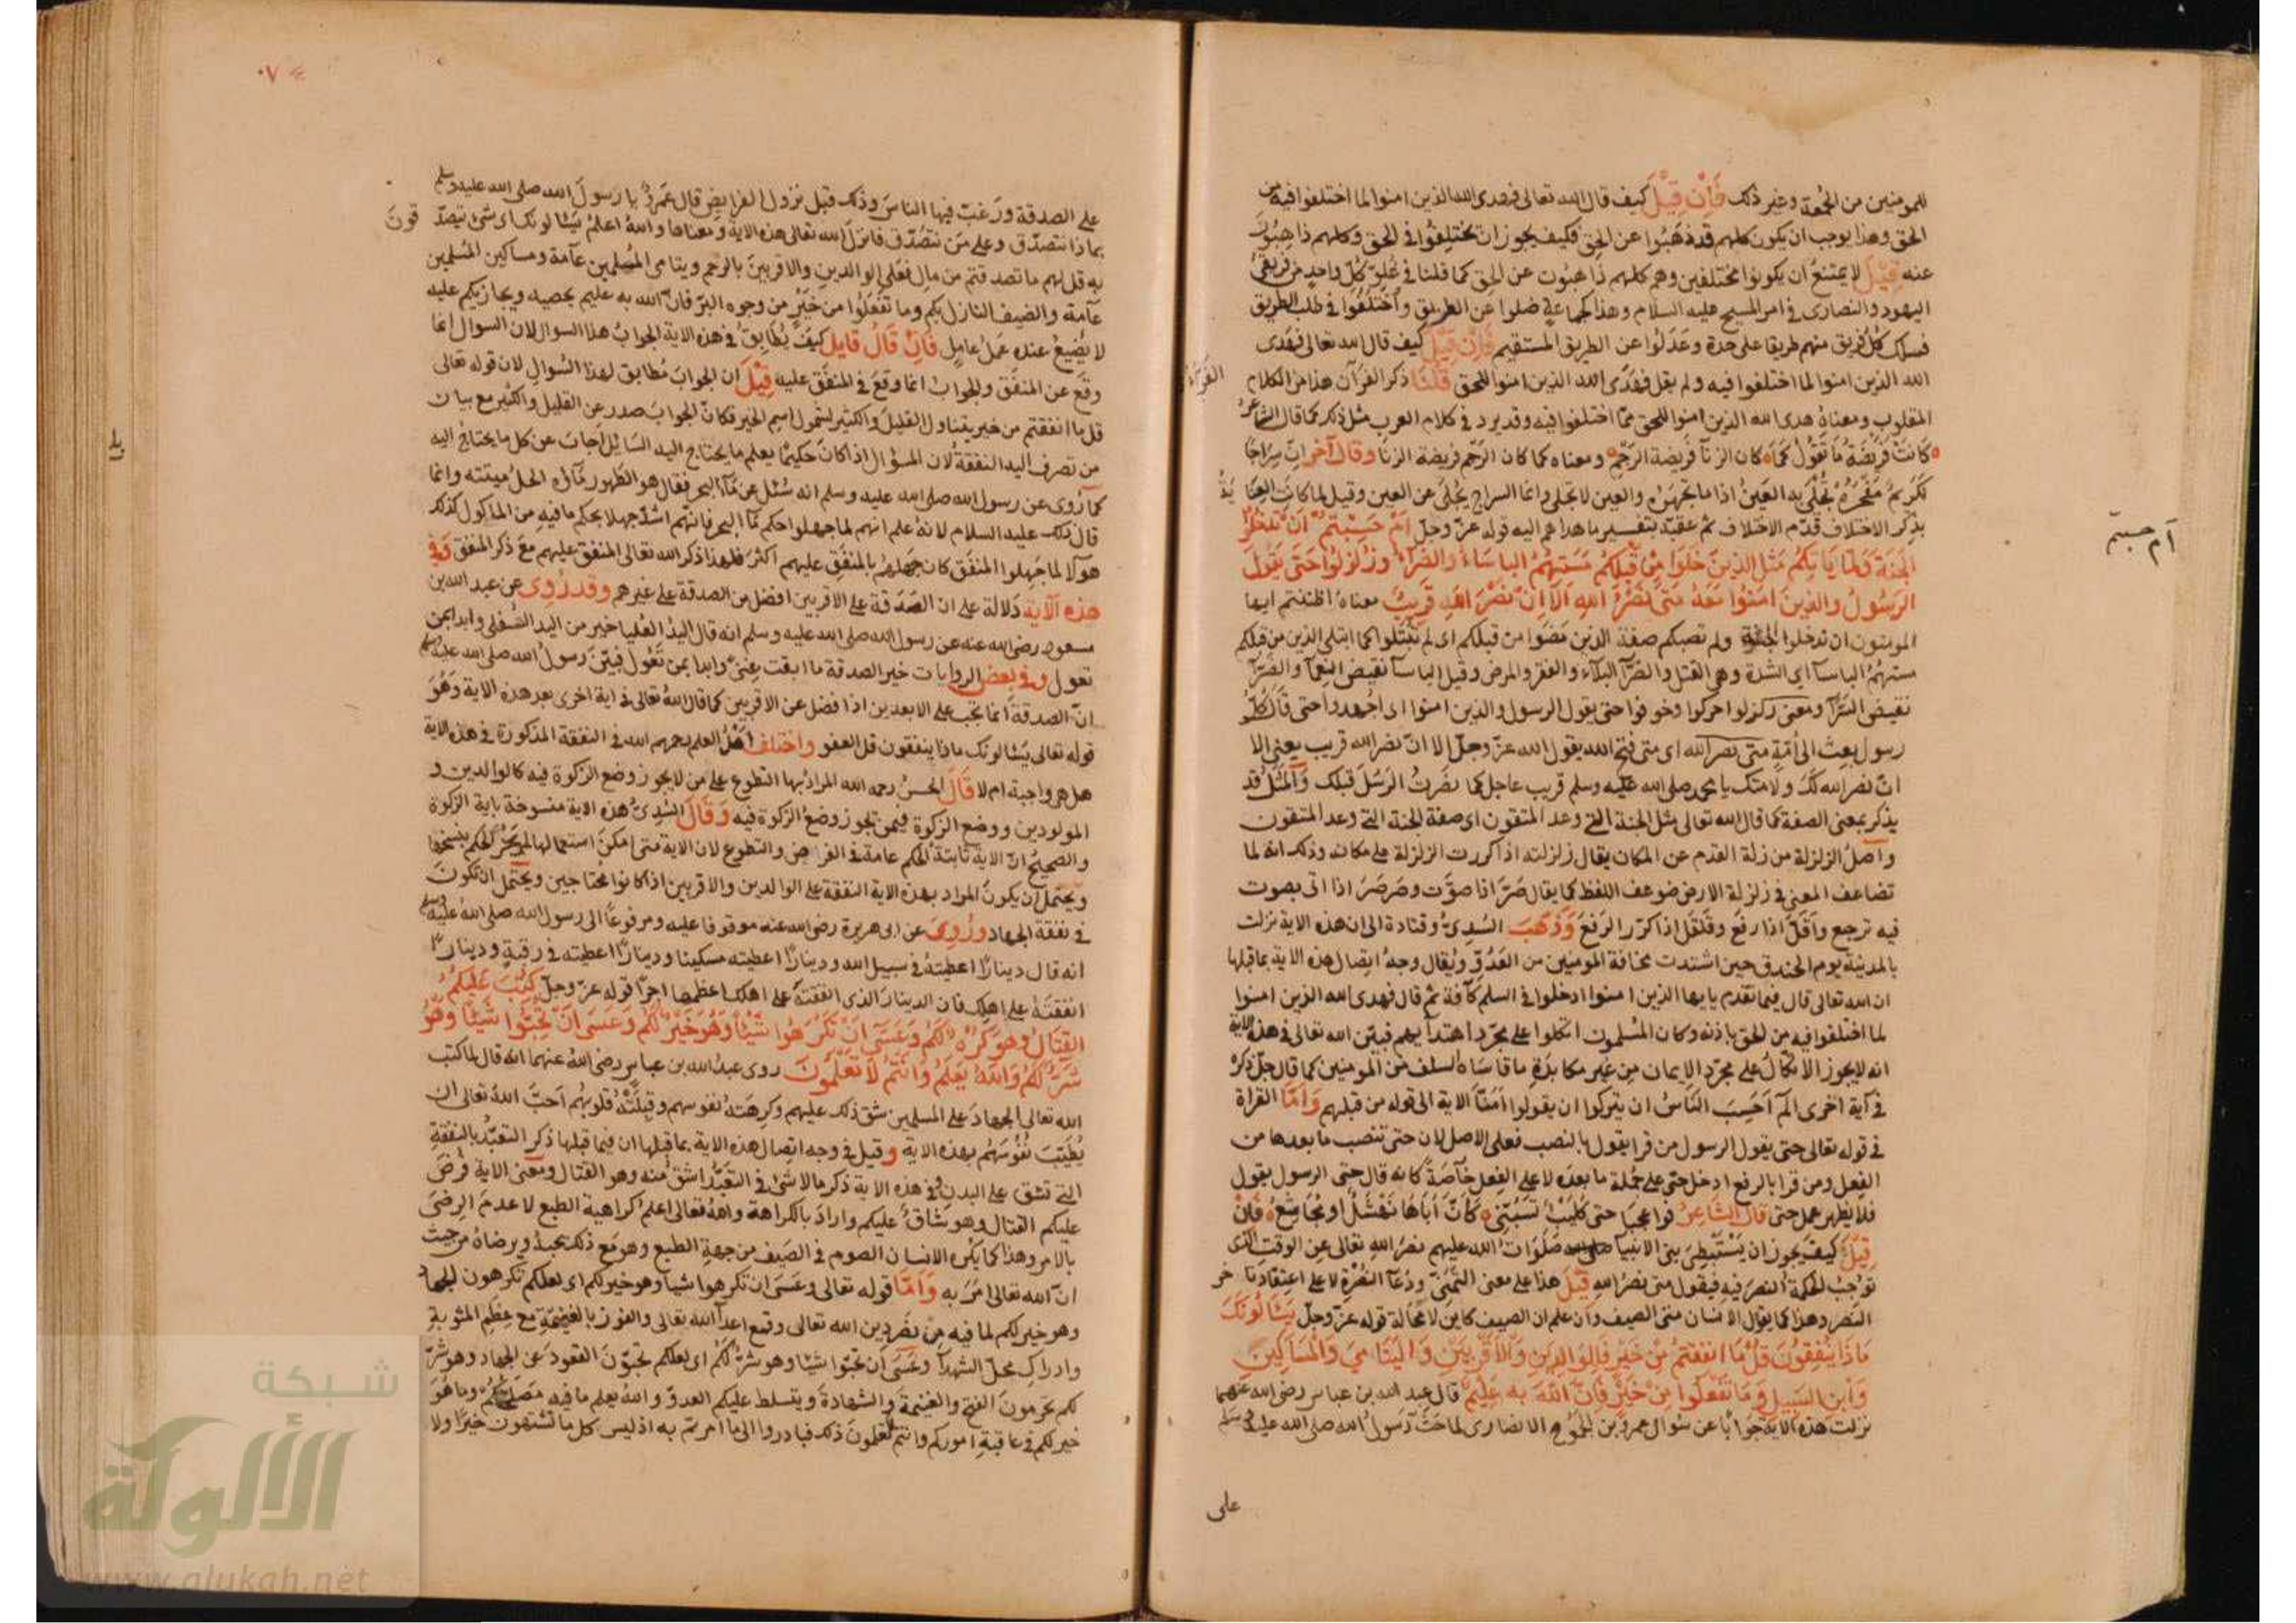 للمومنين من الجمعة وغير ذلك فان قيل كيف قال الله تعالى فهدى الله الذين امنوا لما اختلفوا فيه من
الحق وهذا يوجب ان يكون كلهم قد ذهبوا عن الحق فكيف يجوز ان يختلفوا في الحق وكلهم ذاهبون
عنه قيل لا يمتنع ان يكونوا مختلفين وهم كلهم ذاهبون عن الحق كما قلنا في غلو كل واحد من فريقي
اليهود والنصارى في امر المسيح عليه السلام وهذا كجماعة ضلوا عن الطريق واختلفوا في طلب الطريق
فسلك كل فريق منهم طريقا على حدة وعدلوا عن الطريق المستقيم فان قيل كيف قال الله تعالى فهدى
الله الذين امنوا لما اختلفوا فيه ولم يقل فهدى الله الذين امنوا للحق قلنا ذكر الفرآن هذا من الكلام
المقلوب ومعناه هدى الله الذين امنوا للحق مما اختلفوا فيه وقد يرد في كلام العرب مثل ذلك كما قال الشاعر
كانت فريضة ما تقول كما كان الزنآ فريضة الرجم ومعناه كما كان الرجم فريضة الزنا وقال آخر ان سراجا
لكريم مفخره تجلى به العين اذا ما تجهره والعين لا تجلى وانما السراج يجلى عن العين وقيل لما كانت العنا يـة
بذكر الاختلاف قدم الاختلاف ثم عقبه بتفسير ما هداهم اليه قوله عز وجل ام حسبتم ان تدخلوا
الجنة ولما ياتكم مثل الذين خلوا من قبلكم مستهم الباساء والضرآء وزلزلوا حتى يقول
الرسول والذين امنوا معه متى نصر الله الا ان نصر الله قريب معناه اظننتم ايها
المومنون ان تدخلوا الجنة ولم تصبكم صفة الذين مضوا من قبلكم اى لم تبتلوا كما ابتلى الذين من قبلكم
مستهم الباسآ اى الشدة وهى القتل والضرآ البلآء والفقر والمرض وقيل الباسآ نقيض النعمآ والضرآ
نقيض السرآ ومعنى زلزلوا حركوا وخوفوا حتى يقول الرسول والذين امنوا اى اجهدوا حتى قال كل
رسول بعث الى امته متى نصر الله اى متى فتح الله يقول الله عز وجل الا ان نصر الله قريب يعنى الا
ان نصر الله لك ولامتك يا محمد صلى الله عليه وسلم قريب عاجل كما نصرت الرسل قبلك والمثل قد
يذكر بمعنى الصفة كما قال الله تعالى مثل الجنة التى وعد المتقون اى صفة الجنة التى وعد المتقون
واصل الزلزلة من زلة القدم عن المكان يقال زلزلته اذا كررت الزلزلة على مكانه وذلك انه لما
تضاعف المعنى في زلزلة الارض ضوعف اللفظ كما يقال صر اذا صوت وصرصر اذا اتى بصوت
فيه ترجع واقل اذا رفع وقلقل اذا كرر الرفع وذهب السدى وقتادة الى ان هذه الاية نزلت
بالمدينة يوم الخندق حين اشتدت مخافة المومنين من العدو ويقال وجه اتصال هذه الاية بما قبلها
ان الله تعالى قال فيما تقدم يايها الذين امنوا ادخلوا في السلم كآفة ثم قال فهدى الله الذين امنوا
لما اختلفوا فيه من الحق باذنه وكان المسلمون اتكلوا على مجرد اهتدآيهم فبين الله تعالى في هذه الاية
انه لا يجوز الاتكال على مجرد الايمان من غير مكابدة ما قاساه السلف من المومنين كما قال جل ذكره
في آية اخرى الم احسب الناس ان يتركوا ان يقولوا امنا الاية الى قوله من قبلهم واما القراة
في قوله تعالى حتى يقول الرسول من قرا يقول بالنصب فعلى الاصل لان حتى تنصب ما بعدها من
الفعل ومن قرا بالرفع ادخل حتى على جملة ما بعده لا على الفعل خآصة كانه قال حتى الرسول يقول
فلا يظهر عمل حتى قال الشاعر فوا عجبا حتى كليب تسبني كان اباها نهشل او مجاشع فان
قيل كيف يجوز ان يستبطى الانبيا صلوات الله عليهم نصر الله تعالى عن الوقت الذى
توجب الحكمة النصر فيه فيقول متى نصر الله قيل هذا على معنى التمنى ودعآ النصرة لا على اعتقاد تا خر
النصر وهذا كما يقول الانسان متى الصيف وان علم ان الصيف كاين لا محالة قوله عز وجل يسالونك
ماذا ينفقون قل ما انفقتم من خير فللوالدين والاقربين واليتامى والمساكين
وابن السبيل وما تفعلوا من خير فان الله به عليم قال عبد الله بن عباس رضى الله عنهما
نزلت هذه الاية جوابا عن سوال عمرو بن الجموح الانصارى لما حث رسول الله صلى الله عليه وسلم
على
ام حسبتم
على الصدقة ورغب فيها الناس وذلك قبل نزول الفرايض قال عمرو يا رسول الله صلى الله عليه وسلم
بماذا نتصدق وعلى من نتصدق فانزل الله تعالى هذه الاية ومعناها والله اعلم يسالونك اى شئ يتصد قون
به قل لهم ما تصدقتم من مال فعلى الوالدين والاقربين بالرحم ويتامى المسلمين عآمة ومساكين المسلمين
عآمة والضيف النازل بكم وما تفعلوا من خير من وجوه البر فان الله به عليم يحصيه ويجازيكم عليه
لا يضيع عنده عمل عامل فان قال قايل كيف يطابق في هذه الاية الجواب هذا السوال لان السوال انما
وقع عن المنفق والجواب انما وقع في المنفق عليه قيل ان الجواب مطابق لهذا السوال لان قوله تعالى
قل ما انفقتم من خير يتناول القليل والكثير لشمول اسم الخير فكان الجواب صدر عن القليل والكثير مع بيان
من تصرف اليه النفقة لان المسؤال اذا كان حكيما يعلم ما يحتاج اليه السائل اجاب عن كل ما يحتاج اليه
كما روى عن رسول الله صلى الله عليه وسلم انه سئل عن مآ البحر فقال هو الطهور مآؤه الحل ميتته وانما
قال ذلك عليه السلام لانه علم انهم لما جهلوا حكم مآ البحر فانهم اشد جهلا بحكم ما فيه من الماكول كذلك
هولا لما جهلوا المنفق كان جهلهم بالمنفق عليهم اكثر فلهذا ذكر الله تعالى المنفق عليهم مع ذكر المنفق وفي
هذه الآية دلالة على ان الصدقة على الاقربين افضل من الصدقة على غيرهم وقد روى عن عبد الله بن
مسعود رضى الله عنه عن رسول الله صلى الله عليه وسلم انه قال اليد العليا خير من اليد السفلى وابدا بمن
تعول وفي بعض الروايات خير الصدقة ما ابقت غنى وابدا بمن تعول فبين رسول الله صلى الله عليه وسلم
ان الصدقة انما تجب على الابعدين اذا فضل عن الاقربين كما قال الله تعالى في اية اخرى بعد هذه الاية وهو
قوله تعالى يسالونك ماذا ينفقون قل العفو واختلف اهل العلم رحمهم الله في النفقة المذكورة في هذه الاية
هل هى واجبة ام لا قال الحسن رحمه الله المراد بها التطوع على من لا يجوز وضع الزكوة فيه كالوالدين و
المولودين ووضع الزكوة فيمن تجوز وضع الزكوة فيه وقال السدى هذه الاية منسوخة باية الزكوة
والصحيح ان الاية ثابتة الحكم عامة في الفرض والتطوع لان الاية متى امكن استعمالها لم يجز الحكم بنسخها
ويحتمل ان يكون المراد بهذه الاية النفقة على الوالدين والاقربين اذا كانوا محتاجين ويحتمل ان تكون
في نفقة الجهاد وروى عن ابى هريرة رضى الله عنه موقوفا عليه ومرفوعا الى رسول الله صلى الله عليه وسلم
انه قال دينارا اعطيته في سبيل الله ودينارا اعطيته مسكينا ودينارا اعطيته في رقبة ودينارا
انفقته على اهلك فان الدينار الذى انفقته على اهلك اعظمها اجرا قوله عز وجل كتب عليكم
القتال وهو كره لكم وعسى ان تكرهوا شيئا وهو خير لكم وعسى ان تحبوا شيئا وهو
شر لكم والله يعلم وانتم لا تعلمون روى عبد الله بن عباس رضى الله عنهما انه قال لما كتب
الله تعالى الجهاد على المسلمين شق ذلك عليهم وكرهته نفوسهم وقبلته قلوبهم احب الله تعالى ان
يطيب نفوسهم بهذه الاية وقيل في وجه اتصال هذه الاية بما قبلها ان فيما قبلها ذكر التعبد بالنفقة
التى تشق على البدن وفي هذه الاية ذكر ما لا شئ في التعبد اشق منه وهو القتال ومعنى الاية فرض
عليكم القتال وهو شاق عليكم واراد بالكراهة والله تعالى اعلم كراهية الطبع لا عدم الرضى
بالامر وهذا كما يكره الانسان الصوم في الصيف من جهة الطبع وهو مع ذلك يحبه ويرضاه من حيث
ان الله تعالى امر به واما قوله تعالى وعسى ان تكرهوا شيا وهو خير لكم اى لعلكم تكرهون الجهاد
وهو خير لكم لما فيه من نصر دين الله تعالى وقمع اعدآ الله تعالى والفوز بالغنيمة مع عظم المثوبة
وادراك محل الشهدآ وعسى ان تحبوا شيئا وهو شر لكم اى لعلكم تحبون القعود عن الجهاد وهو شر
لكم تحرمون الفتح والغنيمة والشهادة ويتسلط عليكم العدو والله يعلم ما فيه مصلحتكم وما هو
خير لكم في عاقبة اموركم وانتم لا تعلمون ذلك فبادروا الى ما امرتم به اذ ليس كل ما تشتهون خيرا ولا
شبكة
الألوكة
www.alukah.net